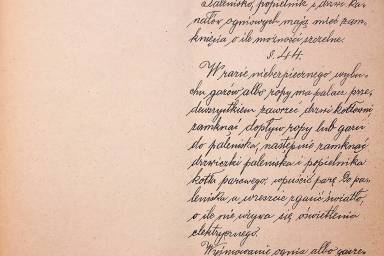 Palenisko, popielnik i drzwi ka-
nałów ogniowych mają mieć zam-
knięcia o ile możności szczelne.
§. 44.
W razie niebezpiecznego wybu-
chu gazów albo ropy ma palacz prze-
dewszystkiem zawrzeć drzwi kotłowni
zamknąć dopływ ropy lub gazu
do paleniska, następnie zamknąć
drzwiczki paleniska i popielnika
kotła parowego, wpuścić parę do pa-
leniska a wreszcie zgasić światło,
o ile nie używa się oświetlenia
elektrycznego.
Wyjmowanie ognia albo